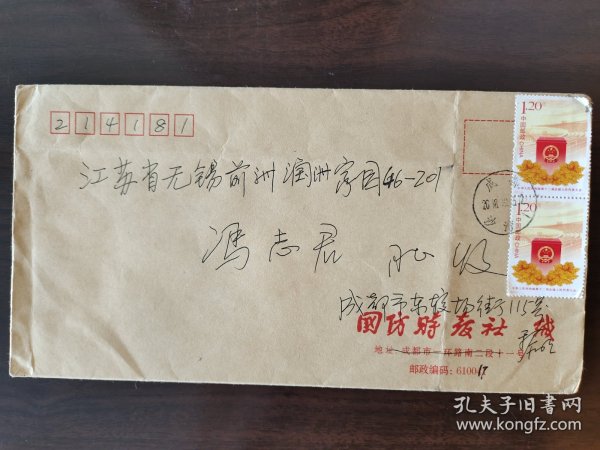 214181
1.20元
中国邮政 CHINA
江苏省无锡前洲润洲家园46-201
1.20元
中国邮政 CHINA
冯志君
收
成都市东较场街115号
国防时报社
地址:成都市一环路南二段十一号
邮政编码:610017
孔夫子旧书网
www.kongfz.com